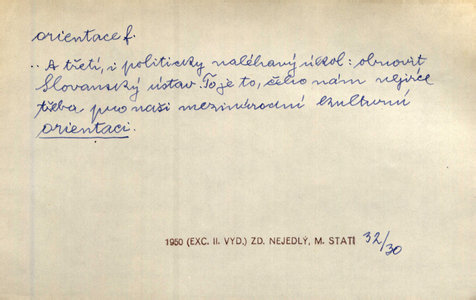 orientace f.
.. A třetí, i politicky naléhavý úkol: obnovit
Slovanský ústav. To je to, čeho nám nejvíce
třeba pro naši mezinárodní kulturní
orientaci.
1950 (EXC. II. VYD.) ZD. NEJEDLÝ, M. STATI 32/30